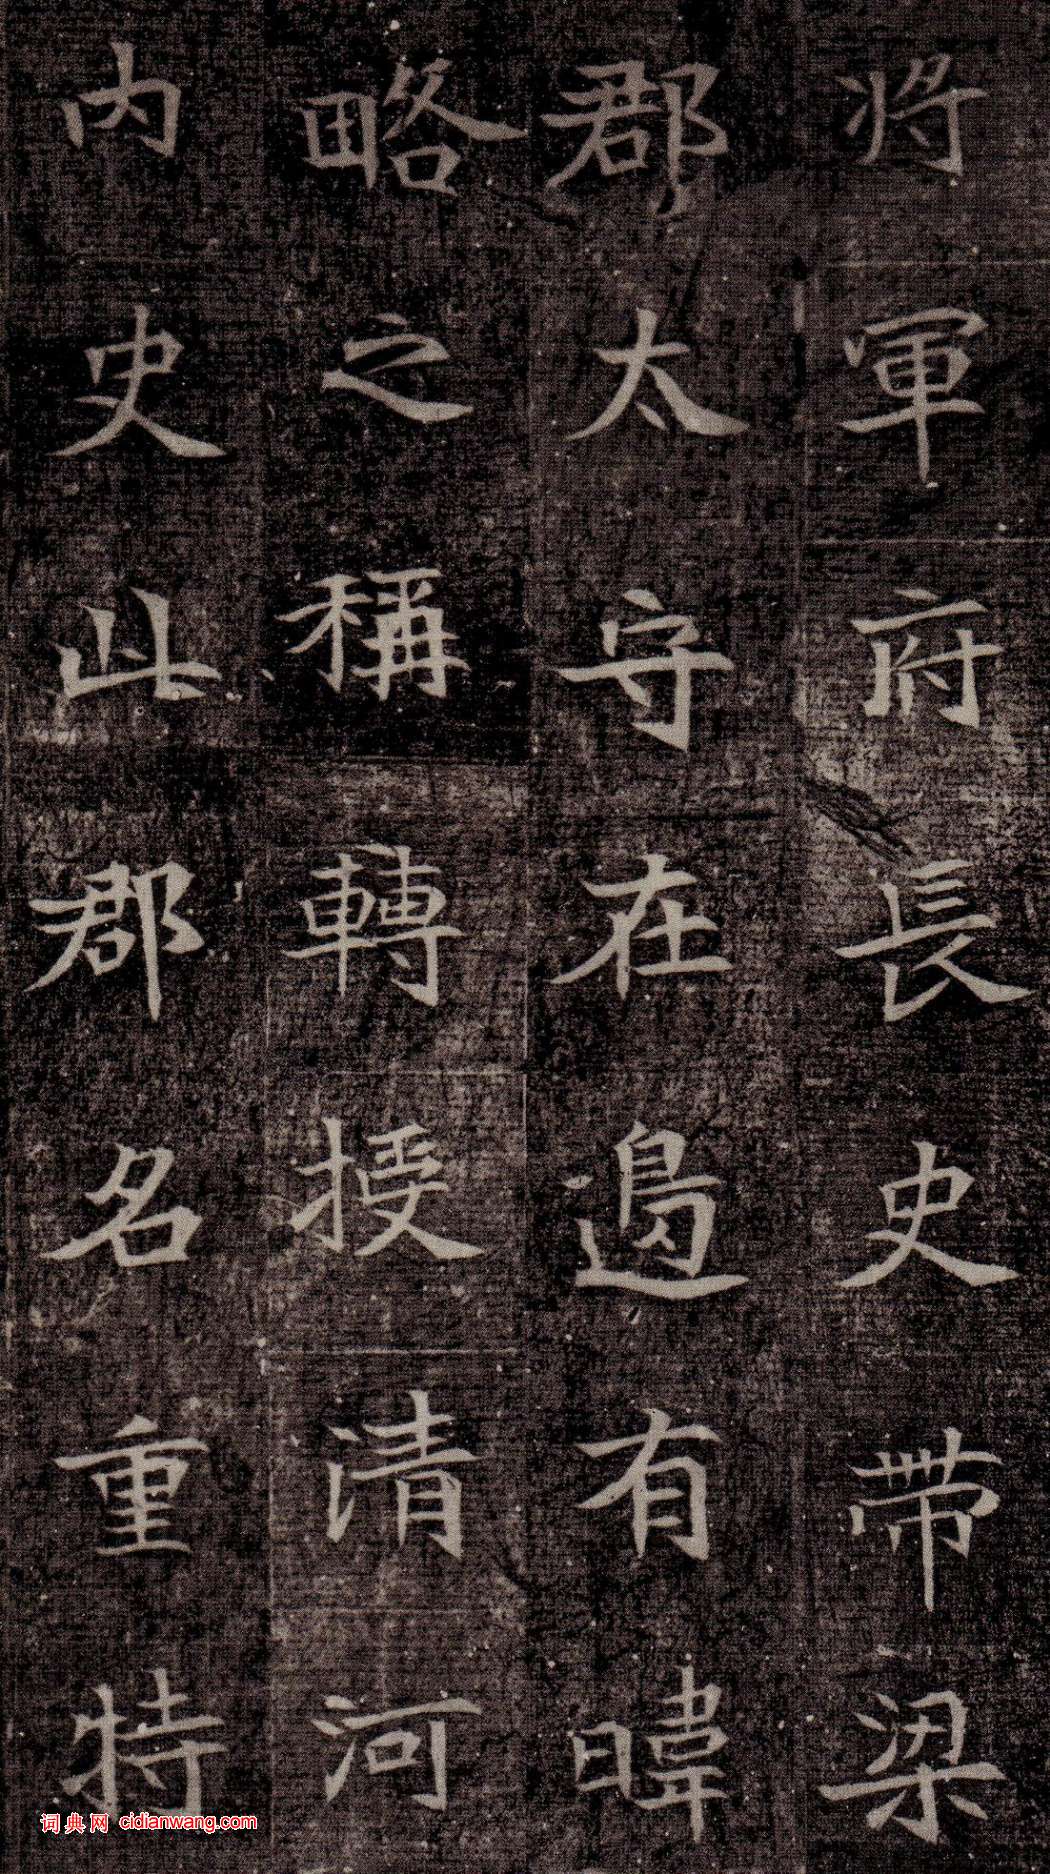 將軍府長史帶梁
郡太守在邊有暐
略之稱轉授清河
內史此郡名重特
词典网 cidianwang.com